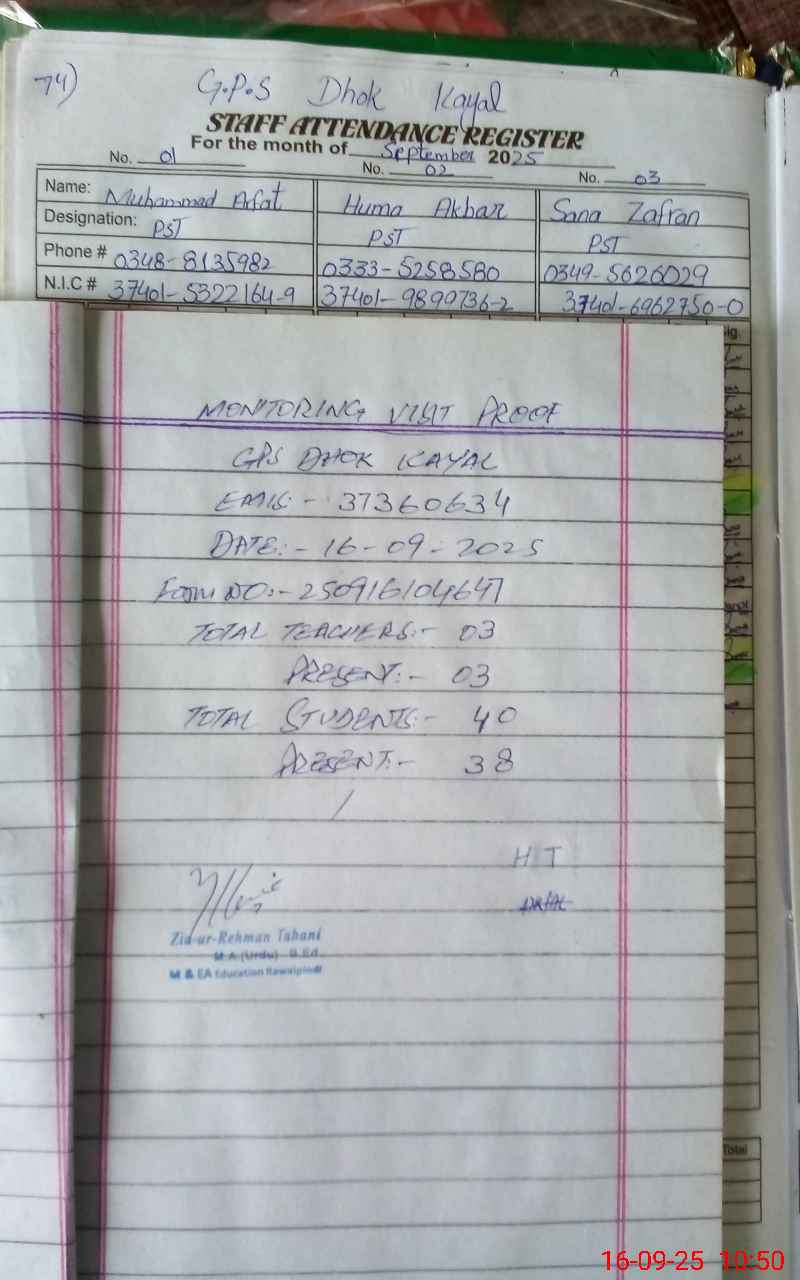 74)
G.P.S Dhok Kayal
STAFF ATTENDANCE REGISTER
For the month of September 2025
No. 01 No. 02 No. 03
Name: Muhammad Arfat Huma Akbar Sana Zafran
Designation: PST PST PST
Phone # 0348-8135982 0333-5258580 0349-5626029
N.I.C # 37401-5322164-9 37401-9899736-2 37401-6962750-0
MONITORING VISIT PROOF
GPS DHOK KAYAL
EMIS:- 37360634
DATE:- 16-09-2025
Form NO:- 250916104647
TOTAL TEACHERS:- 03
PRESENT:- 03
TOTAL STUDENTS:- 40
PRESENT:- 38
H T
Zia-ur-Rehman Tabani
M.A (Urdu) B.Ed
M & EA Education Rawalpindi
Total
16-09-25 10:50